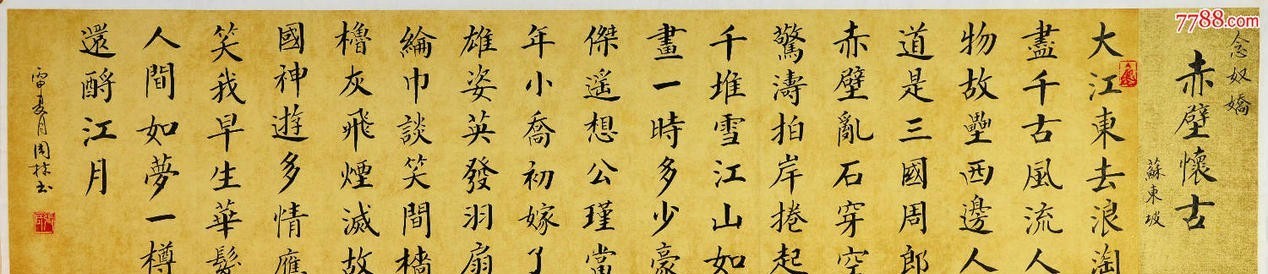 念奴嬌
赤壁懷古
蘇東坡
大江東去浪淘
盡千古風流人
物故壘西邊人
道是三國周郎
赤壁亂石穿空
驚濤拍岸捲起
千堆雪江山如
畫一時多少豪
傑遙想公瑾當
年小喬初嫁了
雄姿英發羽扇
綸巾談笑間檣
櫓灰飛煙滅故
國神遊多情應
笑我早生華髮
人間如夢一樽
還酹江月
月周林书
7788.com